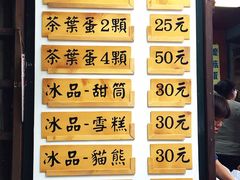 茶葉蛋2顆 25元
茶葉蛋4顆 50元
冰品-甜筒 30元
冰品-雪糕 30元
冰品-貓熊 30元